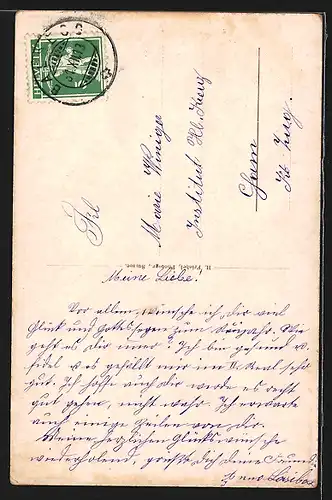 Frl
Marie Winiger
Institut Hl. Kreuz
Cham
Kt. Zug.
Meine Liebe!
Vor allem wünsche ich dir viel
Glück und Gottessegen zum Neujahr. Wie
geht es dir immer? Ich bin gesund u.
fidel u. es gefällt mir im II. Real sehr
gut. Ich hoffe auch dir werde es recht
gut gehen, nicht wahr. Ich erwarte
auch einige Zeilen von dir.
Meine herzlichen Glückswünsche
wiederholend, grüßt dich deine Freundin